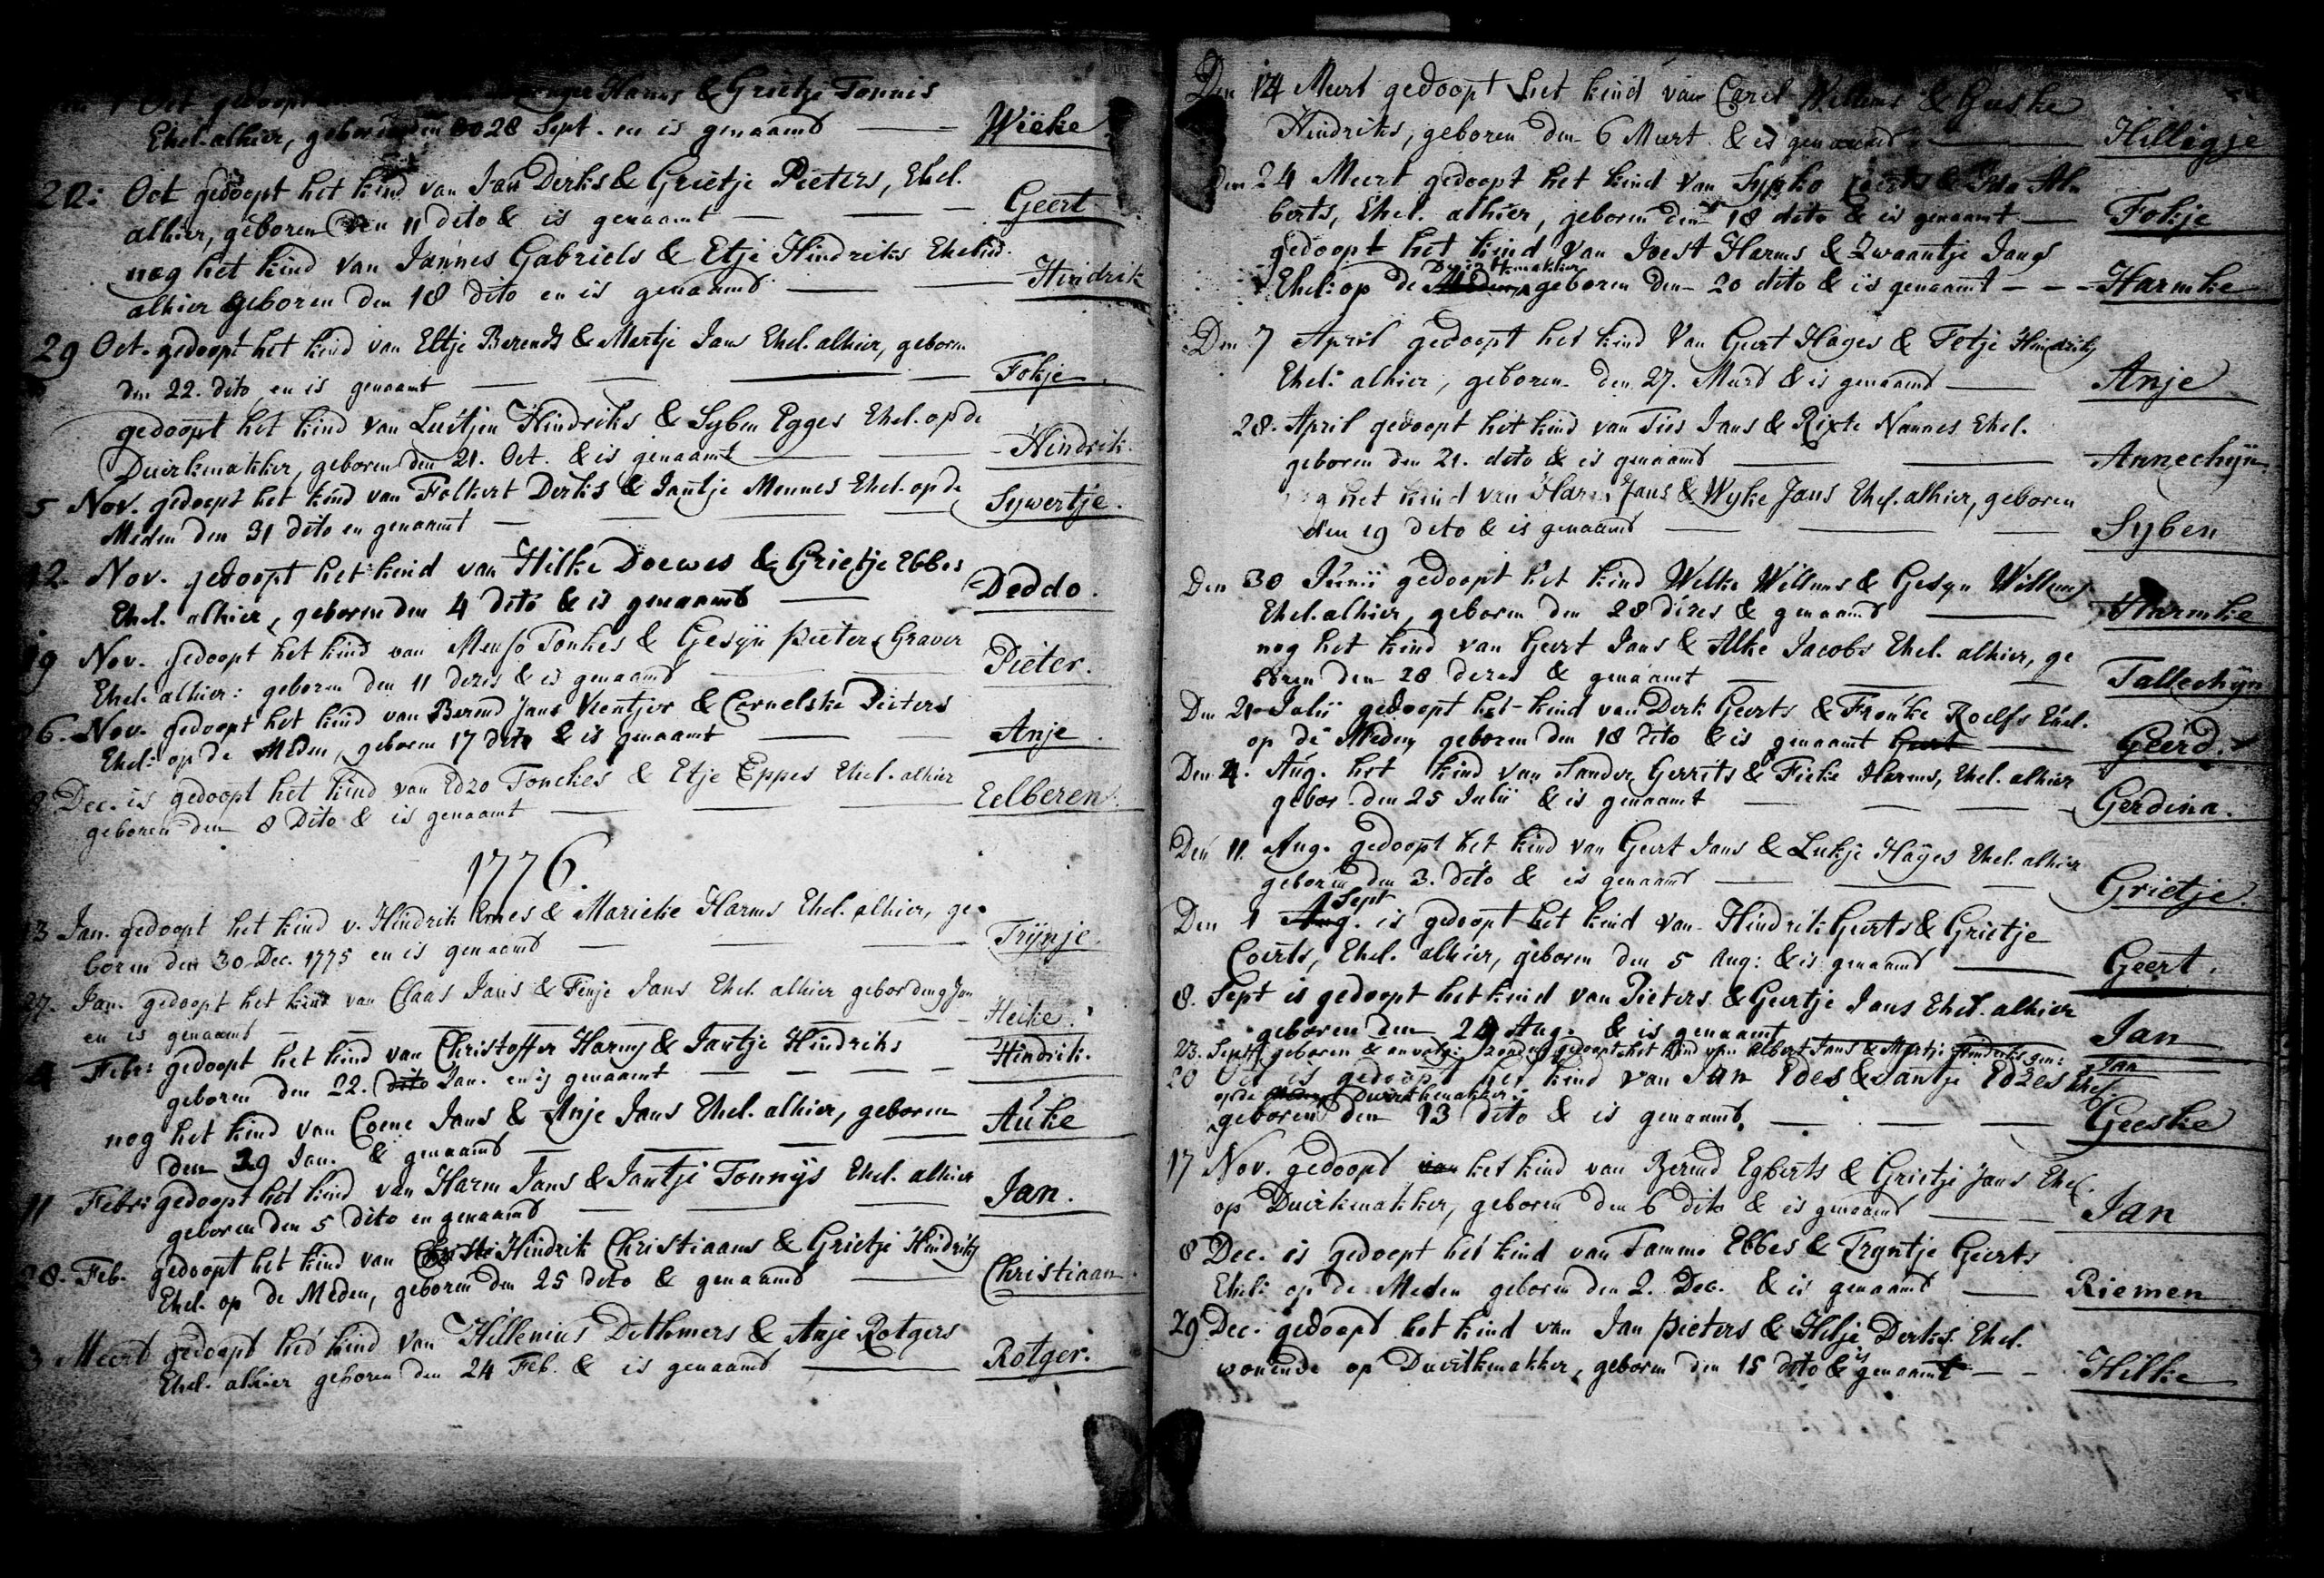 1 Oct gedoopt Harms & Grietje Tonnis
Ehel. alhier, geboren den 28 Sept. en is genaamd — Wieke
22: Oct gedoopt het kind van Jan Derks & Grietje Pieters, Ehel.
alhier, geboren den 11 dito & is genaamt — Geert
nog het kind van Jannes Gabriels & Etje Hindriks Ehelied.
alhier geboren den 18 dito en is genaamd — Hindrik
29 Oct. gedoopt het kind van Eltje Berends & Martje Jans Ehel. alhier, geboren
den 22. dito en is genaamt — Fokje
gedoopt het kind van Luitjen Hindriks & Syben Egges Ehel. op de
Duirkenakker, geboren den 21. Oct. & is genaamt — Hindrik.
5 Nov. gedoopt het kind van Folkert Derks & Jantje Mennes Ehel. op de
Meden den 31 dito en genaamt — Sywertje.
12. Nov. gedoopt het kind van Hilke Doewes & Grietje Ebbes
Ehel. alhier, geboren den 4 dito & is genaamd — Deddo.
19 Nov. gedoopt het kind van Menso Tonkes & Gesyn Pieters Graver
Ehel. alhier: geboren den 11 dezes & is genaamd — Pieter.
26. Nov. gedoopt het kind van Berend Jans Vientjer & Cornelske Pieters
Ehel: op de Meden, geboren 17 dito & is genaamt — Anje.
9 Dec. is gedoopt het kind van Edzo Tonckes & Etje Eppes Ehel. alhier
geboren den 8 Dito & is genaamt — Eelberen.
1776.
13 Jan. gedoopt het kind v. Hindrik Emes & Marieke Harms Ehel. alhier, ge
boren den 30 Dec. 1775 en is genaamd — Trijnje.
27. Jan. gedoopt het kind van Claas Jans & Fenje Jans Ehel. alhier gebor den 9 Jan
en is genaamt — Heike.
4 Febr: gedoopt het kind van Christoffer Harms & Jantje Hindriks
geboren den 22. dito Jan. en is genaamt — Hindrik.
nog het kind van Coene Jans & Anje Jans Ehel. alhier, geboren
den 29 Jan. & genaamd — Auke
11 Febr: gedoopt het kind van Harm Jans & Jantje Tonnijs Ehel. alhier
geboren den 5 dito en genaamd — Jan.
28. Feb. gedoopt het kind van Hindrik Christiaans & Grietje Hindriks
Ehel. op de Meden, geboren den 25 dito & genaamd — Christiaan.
3 Meert gedoopt het kind van Hillenius Dethmers & Anje Rotgers
Ehel. alhier geboren den 24 Feb. & is genaamd — Rotger.
Den 14 Meert gedoopt het kind van Carel Willems & Geeske
Hindriks, geboren den 6 Meert & is genaamd — Hilligje
Den 24 Meert gedoopt het kind van Sypko Coerts & Ida Al
berts, Ehel. alhier, geboren den 18 dito & is genaamt — Fokje
gedoopt het kind van Joest Harms & Zwaantje Jans
Duirkenakker
Ehel: op de Meden, geboren den 20 dito & is genaamt — Harmke
Den 7 April gedoopt het kind van Geert Hages & Fetje Hindriks
Ehel: alhier, geboren den 27. Meerd & is genaamd — Anje
28. April gedoopt het kind van Ties Jans & Rixte Nannes Ehel.
geboren den 21. dito & is genaamd — Annechijn.
het kind van Harm Jans & Wyke Jans Ehel. alhier, geboren
den 19 dito & is genaamd — Syben
Den 30 Junii gedoopt het kind Welke Willems & Gesyn Willems
Ehel. alhier, geboren den 28 dezes & genaamd — Harmke
nog het kind van Geert Jans & Alke Jacobs Ehel. alhier, ge
boren den 28 dezes & genaamt — Tallechijn
Den 21 Julii gedoopt het kind van Derk Geerts & Frouke Roelfs Ehel.
op de Meden geboren den 18 dito & is genaamt Geert — Geerd.
Den 4. Aug. het kind van Sander Gerrits & Fieke Harms, Ehel. alhier
gebor. den 25 Julii & is genaamt — Gerdina.
Den 11. Aug. gedoopt het kind van Geert Jans & Lukje Hayes Ehel. alhier
geboren den 3. dito & is genaamd — Grietje.
Sept
Den 1 Aug. is gedoopt het kind van Hindrik Geerts & Grietje
Coerts, Ehel. alhier, geboren den 5 Aug: & is genaamd — Geert.
8. Sept is gedoopt het kind van Pieters & Geertje Jans Ehel. alhier
geboren den 29 Aug. & is genaamt — Jan
23. Sept geboren & gedoopt het kind van Albert Jans & Martje Hindriks gen: Jan
20 Oct is gedoopt het kind van Jan Edes & Jantje Edzes Ehel.
op de Duirkenakker
geboren den 13 dito & is genaamd. — Geeske
17 Nov. gedoopt van het kind van Berend Egberts & Grietje Jans Ehel.
op Duirkenakker, geboren den 6 dito & is genaamd — Jan
8 Dec. is gedoopt het kind van Tamme Ebbes & Tryntje Geerts
Ehel: op de Meden geboren den 2. Dec. & is genaamd — Riemen
29 Dec. gedoopt het kind van Jan Pieters & Hilje Derks. Ehel.
wonende op Duirkenakker, geboren den 15 dito & is genaamt — Hilke